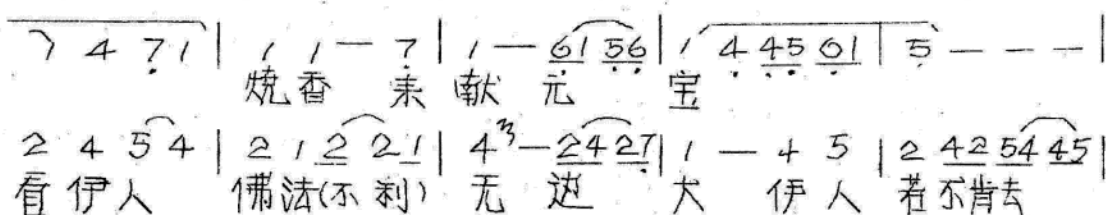 7 4 7 1 | 1 1 — 7 | 1 — 61 56 | 1 4 45 61 | 5 — — — |
烧香 来 献 元 宝
2 4 5 4 | 2 1 2 2 1 | 4 3 — 24 27 | 1 — 4 5 | 2 42 54 45 |
看伊人 佛法(不利) 无边 大 伊人 若不肯去